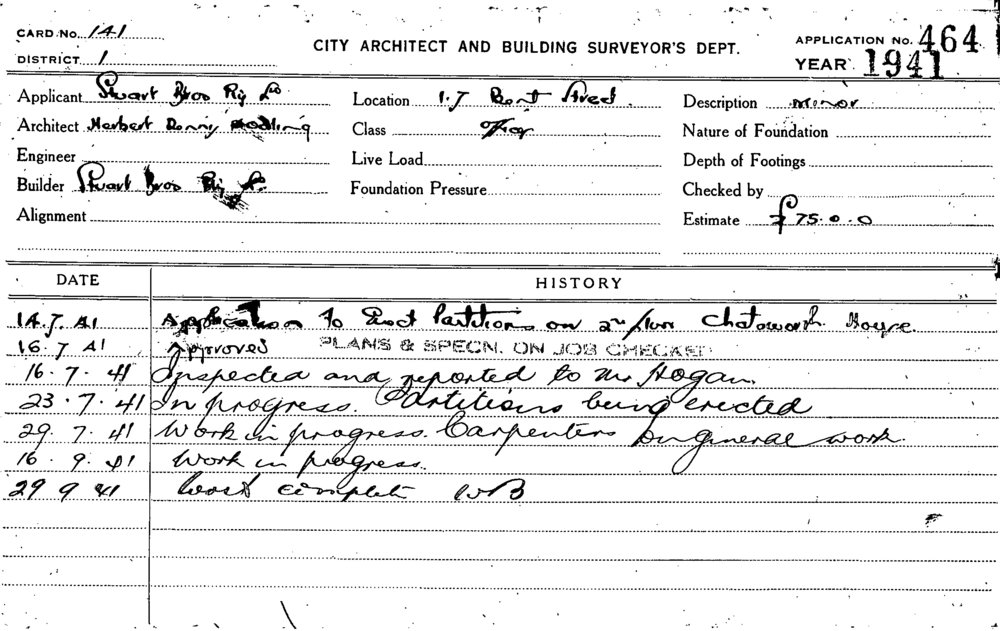 CARD No. 141
DISTRICT 1
CITY ARCHITECT AND BUILDING SURVEYOR'S DEPT.
APPLICATION No. 464
YEAR 1941
Applicant Stuart Bros Pty Ld.
Location 1.7 Bent Street.
Description minor
Architect Herbert Denny
Class Office
Nature of Foundation
Engineer
Live Load
Depth of Footings
Builder Stuart Bros Pty Ld.
Foundation Pressure
Checked by
Alignment
Estimate £75.0.0
DATE
HISTORY
14.7.41 Application to Erect Partitions on 2nd floor Chatsworth House.
16.7.41 Approved PLANS & SPECN. ON JOB CHECKED
16.7.41 Inspected and reported to Mr Hogan.
23.7.41 In progress. Partitions being erected
29.7.41 Work in progress. Carpenters on general work.
16.9.41 Work in progress.
29 9 41 Work complete WB